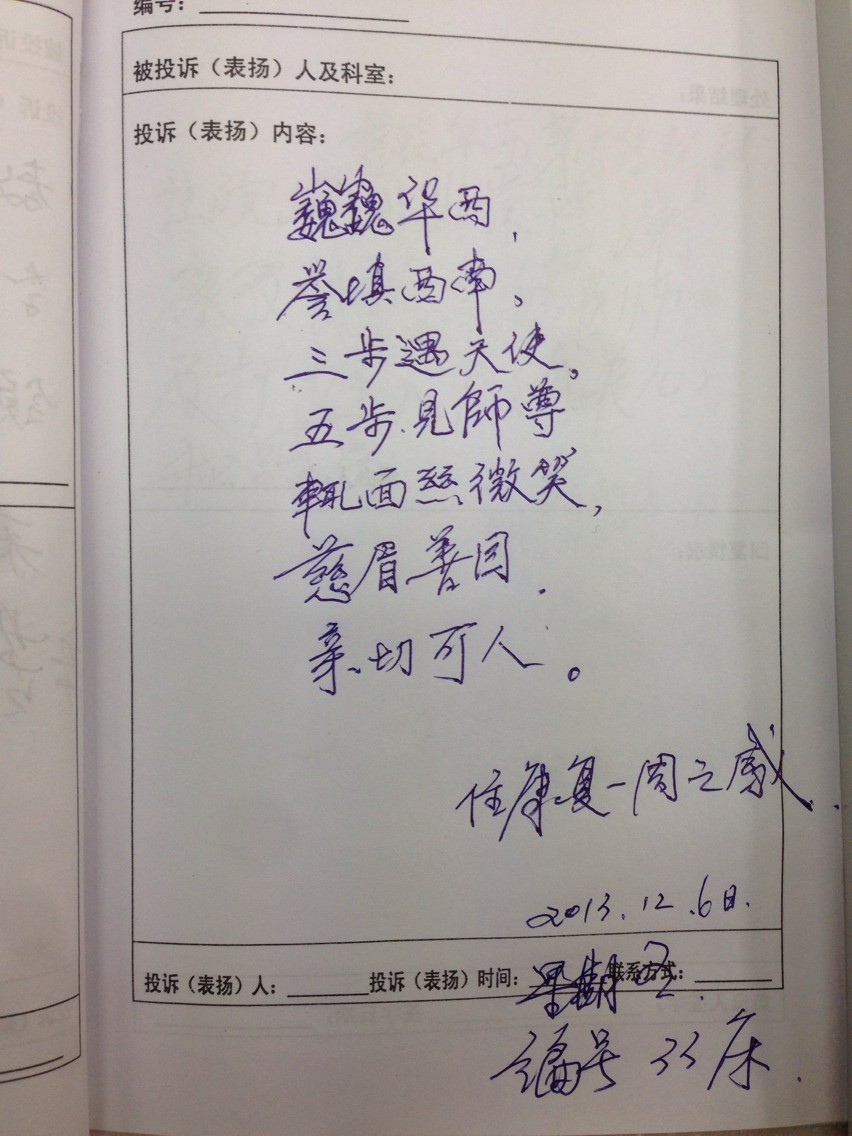 编号：
被投诉（表扬）人及科室：
投诉（表扬）内容：
巍巍华西，
誉填西南，
三步遇天使，
五步见師尊
輒面慈微笑，
慈眉善目.
亲切可人。
住康复一周之感.
2013.12.6日.
投诉（表扬）人： 投诉（表扬）时间： 联系方式：
星期五.
编号33床.